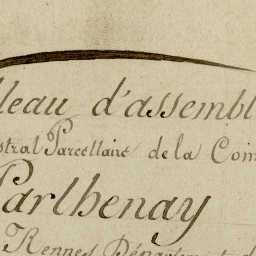 leau d'assembl
stral Parcellaire de la Com
Parthenay
Rennes Département d